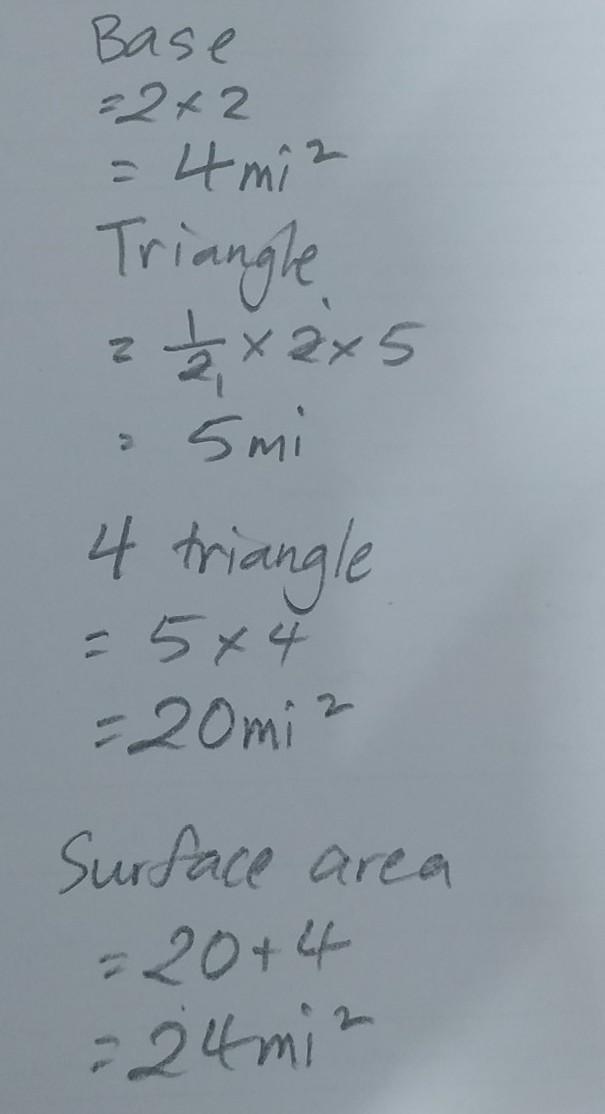 Base
=2×2
= 4mi²
Triangle
= 1/2 × 2 × 5
= 5mi
4 triangle
= 5×4
=20mi²
Surface area
=20+4
=24mi²